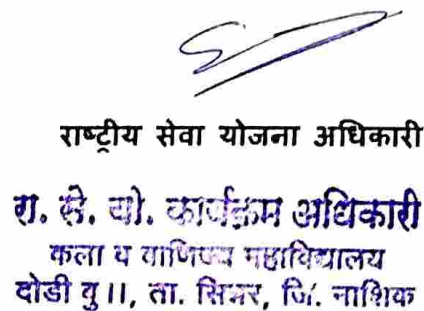 राष्ट्रीय सेवा योजना अधिकारी
रा. से. यो. कार्यक्रम अधिकारी
कला व वाणिज्य महाविद्यालय
दोडी बु॥, ता. सिन्नर, जि. नाशिक